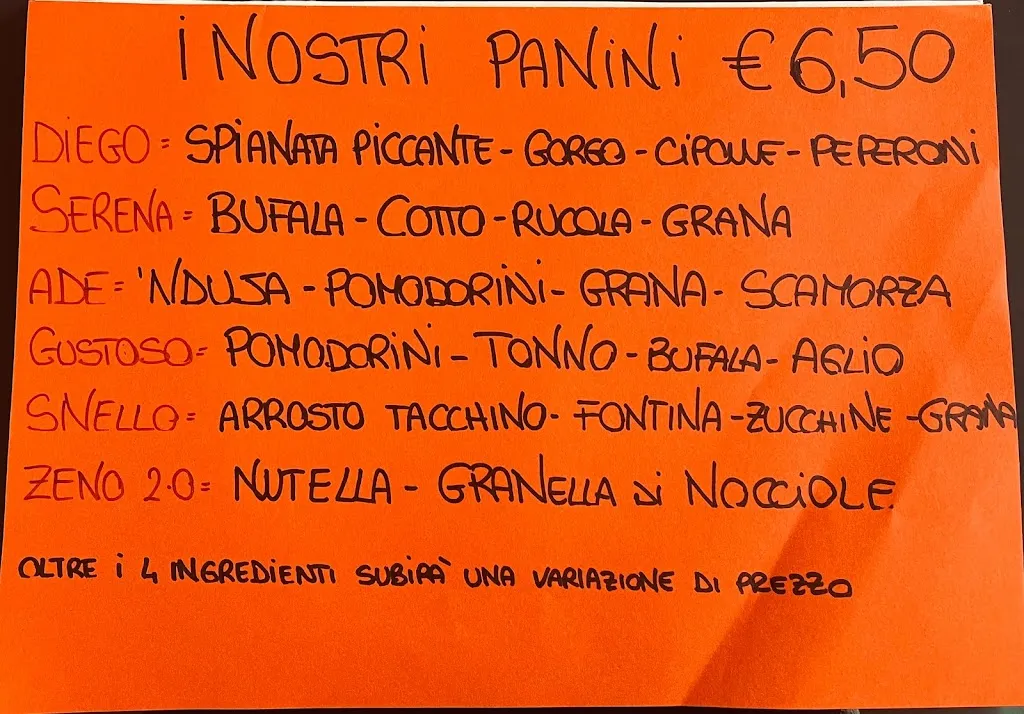 i NOSTRi PANiNi € 6,50
DIEGO = SPIANATA PICCANTE - GORGO - CiPOLLE - PEPERONi
SERENA = BUFALA - COTTO - RUCOLA - GRANA
ADE = 'NDUJA - POMODORiNi - GRANA - SCAMORZA
GUSTOSO = POMODORiNi - TONNO - BUFALA - AGLIO
SNELLO = ARROSTO TACCHINO - FONTINA - ZUCCHINE - GRANA
ZENO 2.0 = NUTELLA - GRANELLA di NOCCiOLE
OLTRE i 4 INGREDIENTI SUBIRÀ UNA VARIAZIONE DI PREZZO